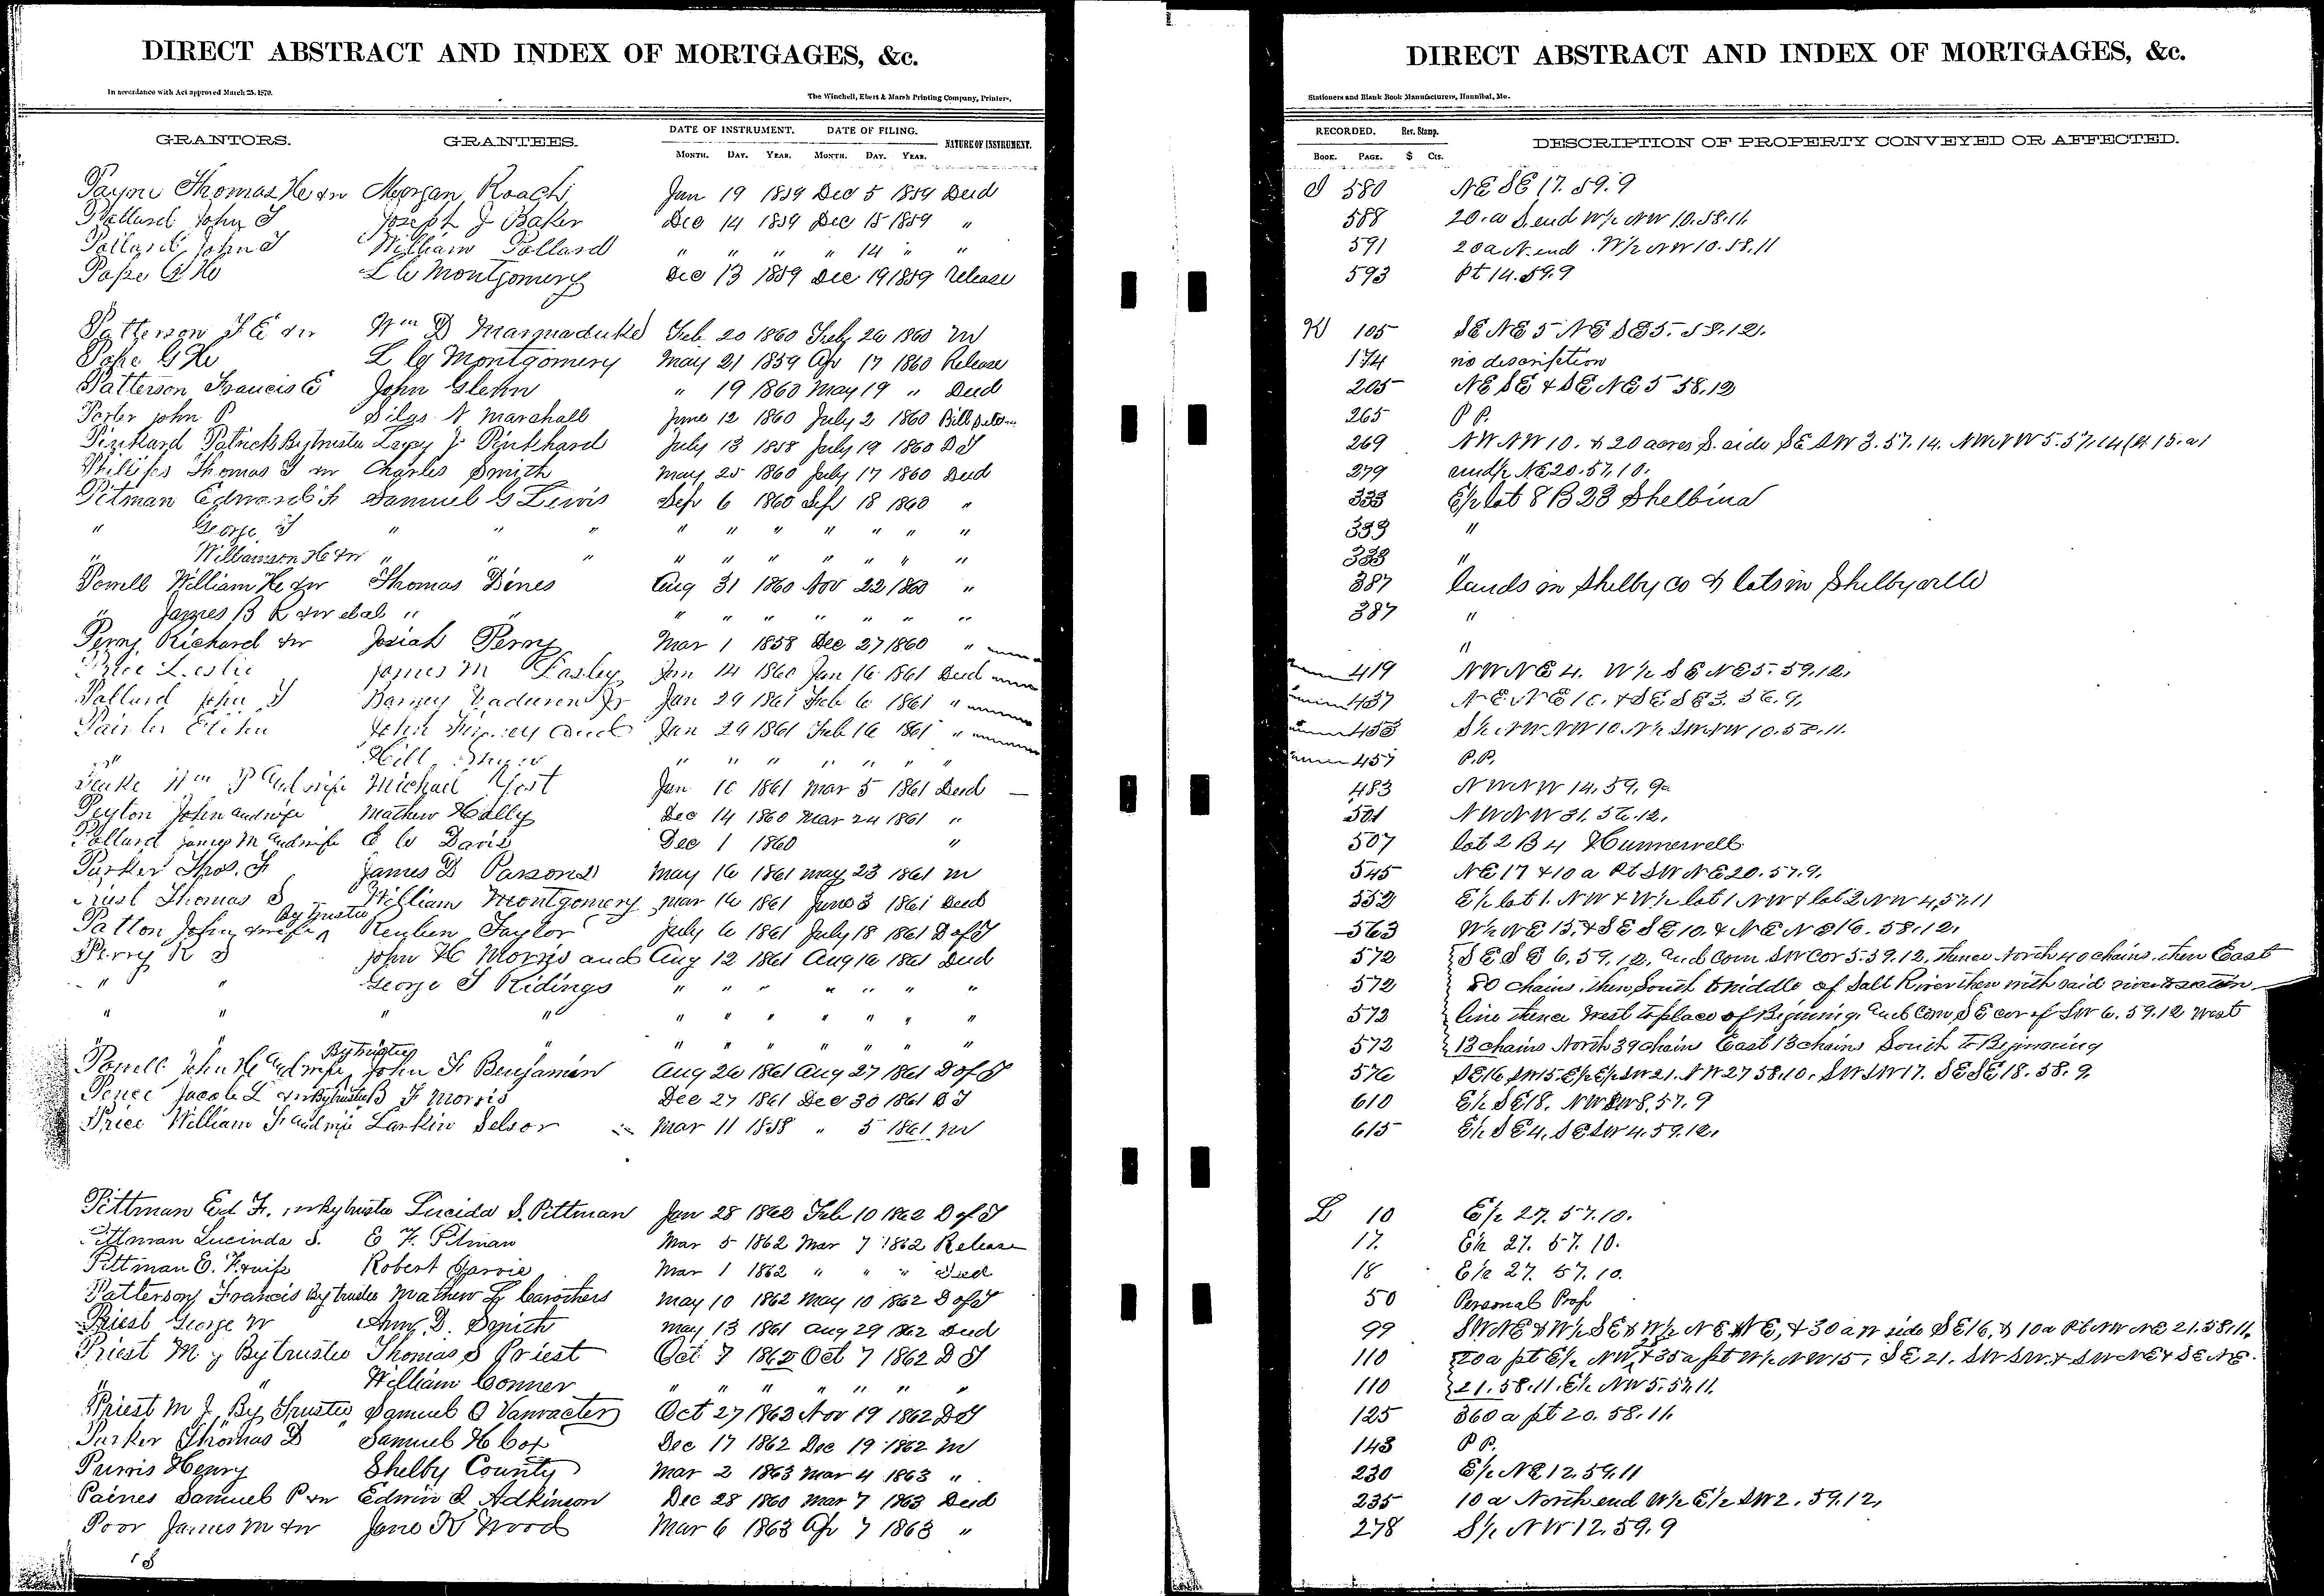 DIRECT ABSTRACT AND INDEX OF MORTGAGES, &c.
In accordance with Act approved March 25, 1870.
The Winchell, Ebert & Marsh Printing Company, Printers,
GRANTORS. GRANTEES. DATE OF INSTRUMENT. DATE OF FILING. NATURE OF INSTRUMENT.
MONTH. DAY. YEAR. MONTH. DAY. YEAR.
Payne Thomas H & w Morgan Roach Jan 19 1859 Dec 5 1859 Deed
Pollard John T Joseph J Baker Dec 14 1859 Dec 15 1859 "
Pollard John T William Pollard " " " " 14 " "
Pope G H L C Montgomery Dec 13 1859 Dec 19 1859 Release
Patterson F E & w Wm D Marmaduke Feb 20 1860 Feby 26 1860 M
Pope G H L C Montgomery May 21 1859 Apr 17 1860 Release
Patterson Francis E John Glenn " 19 1860 May 19 " Deed
Porter John P Silas N Marshall June 12 1860 July 2 1860 Bill Sale
Pinkhard Patrick By trustee J Pinkhard July 13 1858 July 19 1860 D T
Phillips Thomas J & w Charles Smith May 25 1860 July 17 1860 Deed
Pitman Edward F Samuel G Lewis Sep 6 1860 Sep 18 1860 "
" George T " " " " " " " " " "
" Williamson H & w " " " " " " " " " "
Powell William H & w Thomas Dines Aug 31 1860 Nov 22 1860 "
" James B R & w et al " " " " " " " "
Perry Richard & w Josiah Perry Mar 1 1858 Dec 27 1860 "
Price Leslie James M Easley Jan 14 1860 Jan 16 1861 Deed
Pollard John T Barney Jr Jan 29 1861 Feb 6 1861 "
Painter Elihu John and Jan 29 1861 Feb 16 1861 "
" Hill " " " " " " "
Wm P and wife Michael Yost Jan 10 1861 Mar 5 1861 Deed
Peyton John and wife Mathew Holly Dec 14 1860 Mar 24 1861 "
Pollard James M and wife E W Davis Dec 1 1860 "
Parker Thos. F James D Parsons May 16 1861 May 23 1861 M
Priest Thomas S William Montgomery Mar 16 1861 June 3 1861 Deed
Patton John & wife By trustee Reuben Taylor July 6 1861 July 18 1861 D of T
Perry R D John H Morris and Aug 12 1861 Aug 16 1861 Deed
" " George T Ridings " " " " " " "
" " " " " " " " " " "
" " " " " " " " " "
Powell John H and wife By trustee John F Benjamin Aug 26 1861 Aug 27 1861 D of T
Pence Jacob L & w By trustee B F Morris Dec 27 1861 Dec 30 1861 D T
Price William F and wife Larkin Selsor Mar 11 1858 " 5 1861 M
Pittman Ed F. & w by trustee Lucida S. Pittman Jan 28 1862 Feb 10 1862 D of T
Pittman Lucinda S. E F. Pitman Mar 5 1862 Mar 7 1862 Release
Pittman E. F & wife Robert Garvie Mar 1 1862 " " " Deed
Patterson Francis By trustee Mathew Carothers May 10 1862 May 10 1862 D of T
Priest George W Ann D. Smith May 13 1861 Aug 29 1862 Deed
Priest M J By trustee Thomas S Priest Oct 7 1862 Oct 7 1862 D T
" " William Conner " " " " " " "
Priest M J. By Trustee Samuel O Vanvacter Oct 27 1862 Nov 19 1862 D T
Parker Thomas D Samuel H Cox Dec 17 1862 Dec 19 1862 M
Purvis Henry Shelby County Mar 2 1863 Mar 4 1863 "
Paines Samuel P & w Edwin Q Adkinson Dec 28 1860 Mar 7 1863 Deed
Poor James M & w Jane K Wood Mar 6 1863 Apr 7 1863 "
DIRECT ABSTRACT AND INDEX OF MORTGAGES, &c.
Stationers and Blank Book Manufacturers, Hannibal, Mo.
RECORDED. Rev. Stamp. DESCRIPTION OF PROPERTY CONVEYED OR AFFECTED.
BOOK. PAGE. $ Cts.
J 580 NE SE 17. 59. 9
588 20. a S. end W/2 NW 10. 58. 11.
591 20 a N. end. W/2 NW 10. 58. 11
593 pt 14. 59. 9
K 105 SE NE 5 NE SE 5. 58. 12.
174 no description
205 NE SE & SE NE 5 58. 12
265 P P.
269 NW NW 10. & 20 acres S. side SE SW 3. 57. 14. NW NW 5. 57. 14
279 NE 20. 57. 10.
333 E/2 lot 8 B 23 Shelbina
333 "
333 "
387 lands in Shelby co & lots in Shelbyville
387 "
"
419 NW NE 4. W/2 SE NE 5. 59. 12.
437 NE NE 10. & SE SE 3. 56. 9.
453 S/2 NW NW 10 N/2 SW NW 10. 58. 11.
457 P. P.
483 NW NW 14, 59, 9
501 NW NW 31. 56. 12.
507 lot 2 B 4 Hunnewell
545 NE 17 & 10 a Pt SW NE 20. 57. 9.
552 E/2 lot 1. NW & W/2 lot 1 NW & lot 2 NW 4, 57. 11
563 W/2 NE 15, & SE SE 10. & NE NE 16. 58. 12.
572 SE SE 6. 59. 12. and Com SW Cor 5. 59. 12. thence North 40 chains. then East
572 80 chains. then South to middle of Salt River then with said river to section
572 line thence West to place of Beginning. and Com SE cor of SW 6. 59. 12 West
572 13 chains North 39 chains East 13 chains South to Beginning
576 SE 16 SW 15. E/2 E/2 SW 21. NW 27 58. 10. SW SW 17. SE SE 18. 58. 9.
610 E/2 SE 18. NW SW 8. 57. 9
615 E/2 SE 4. SE SW 4. 59. 12.
L 10 E/2 27. 57. 10.
17. E/2 27. 57. 10.
18 E/2 27. 57. 10.
50 Personal Prop
99 SW NE & W/2 SE & W/2 NE NE, & 30 a W side SE 16. & 10 a Pt NW NE 21. 58. 11.
110 20 a pt E/2 NW & 35 a pt W/2 NW 15, SE 21. SW SW. & SW NE & SE NE
110 21. 58. 11. E/2 NW 5. 57. 11.
125 360 a pt 20. 58. 11.
143 P P.
230 E/2 NE 12. 59. 11
235 10 a North end W/2 E/2 SW 2. 59. 12.
278 S/2 NW 12. 59. 9